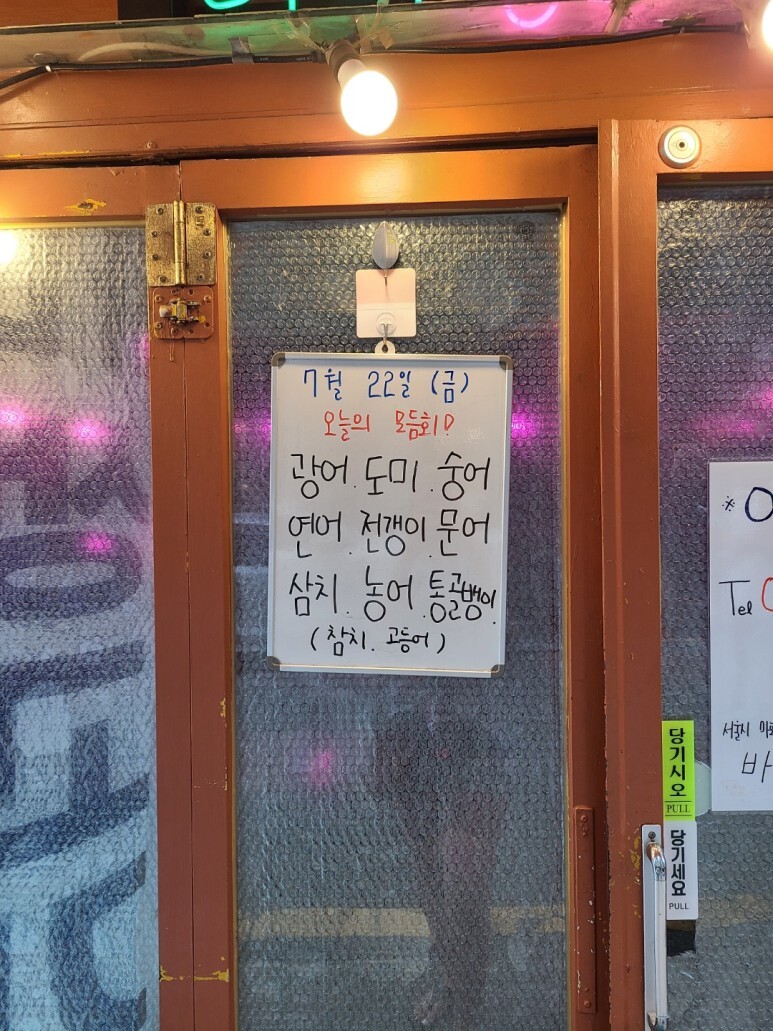 7월 22일 (금)
오늘의 모듬회!
광어. 도미. 숭어
연어. 전갱이. 문어
삼치. 농어. 통골뱅이.
(참치. 고등어)
※
Tel
서울시
당기시오
PULL
당기세요
PULL